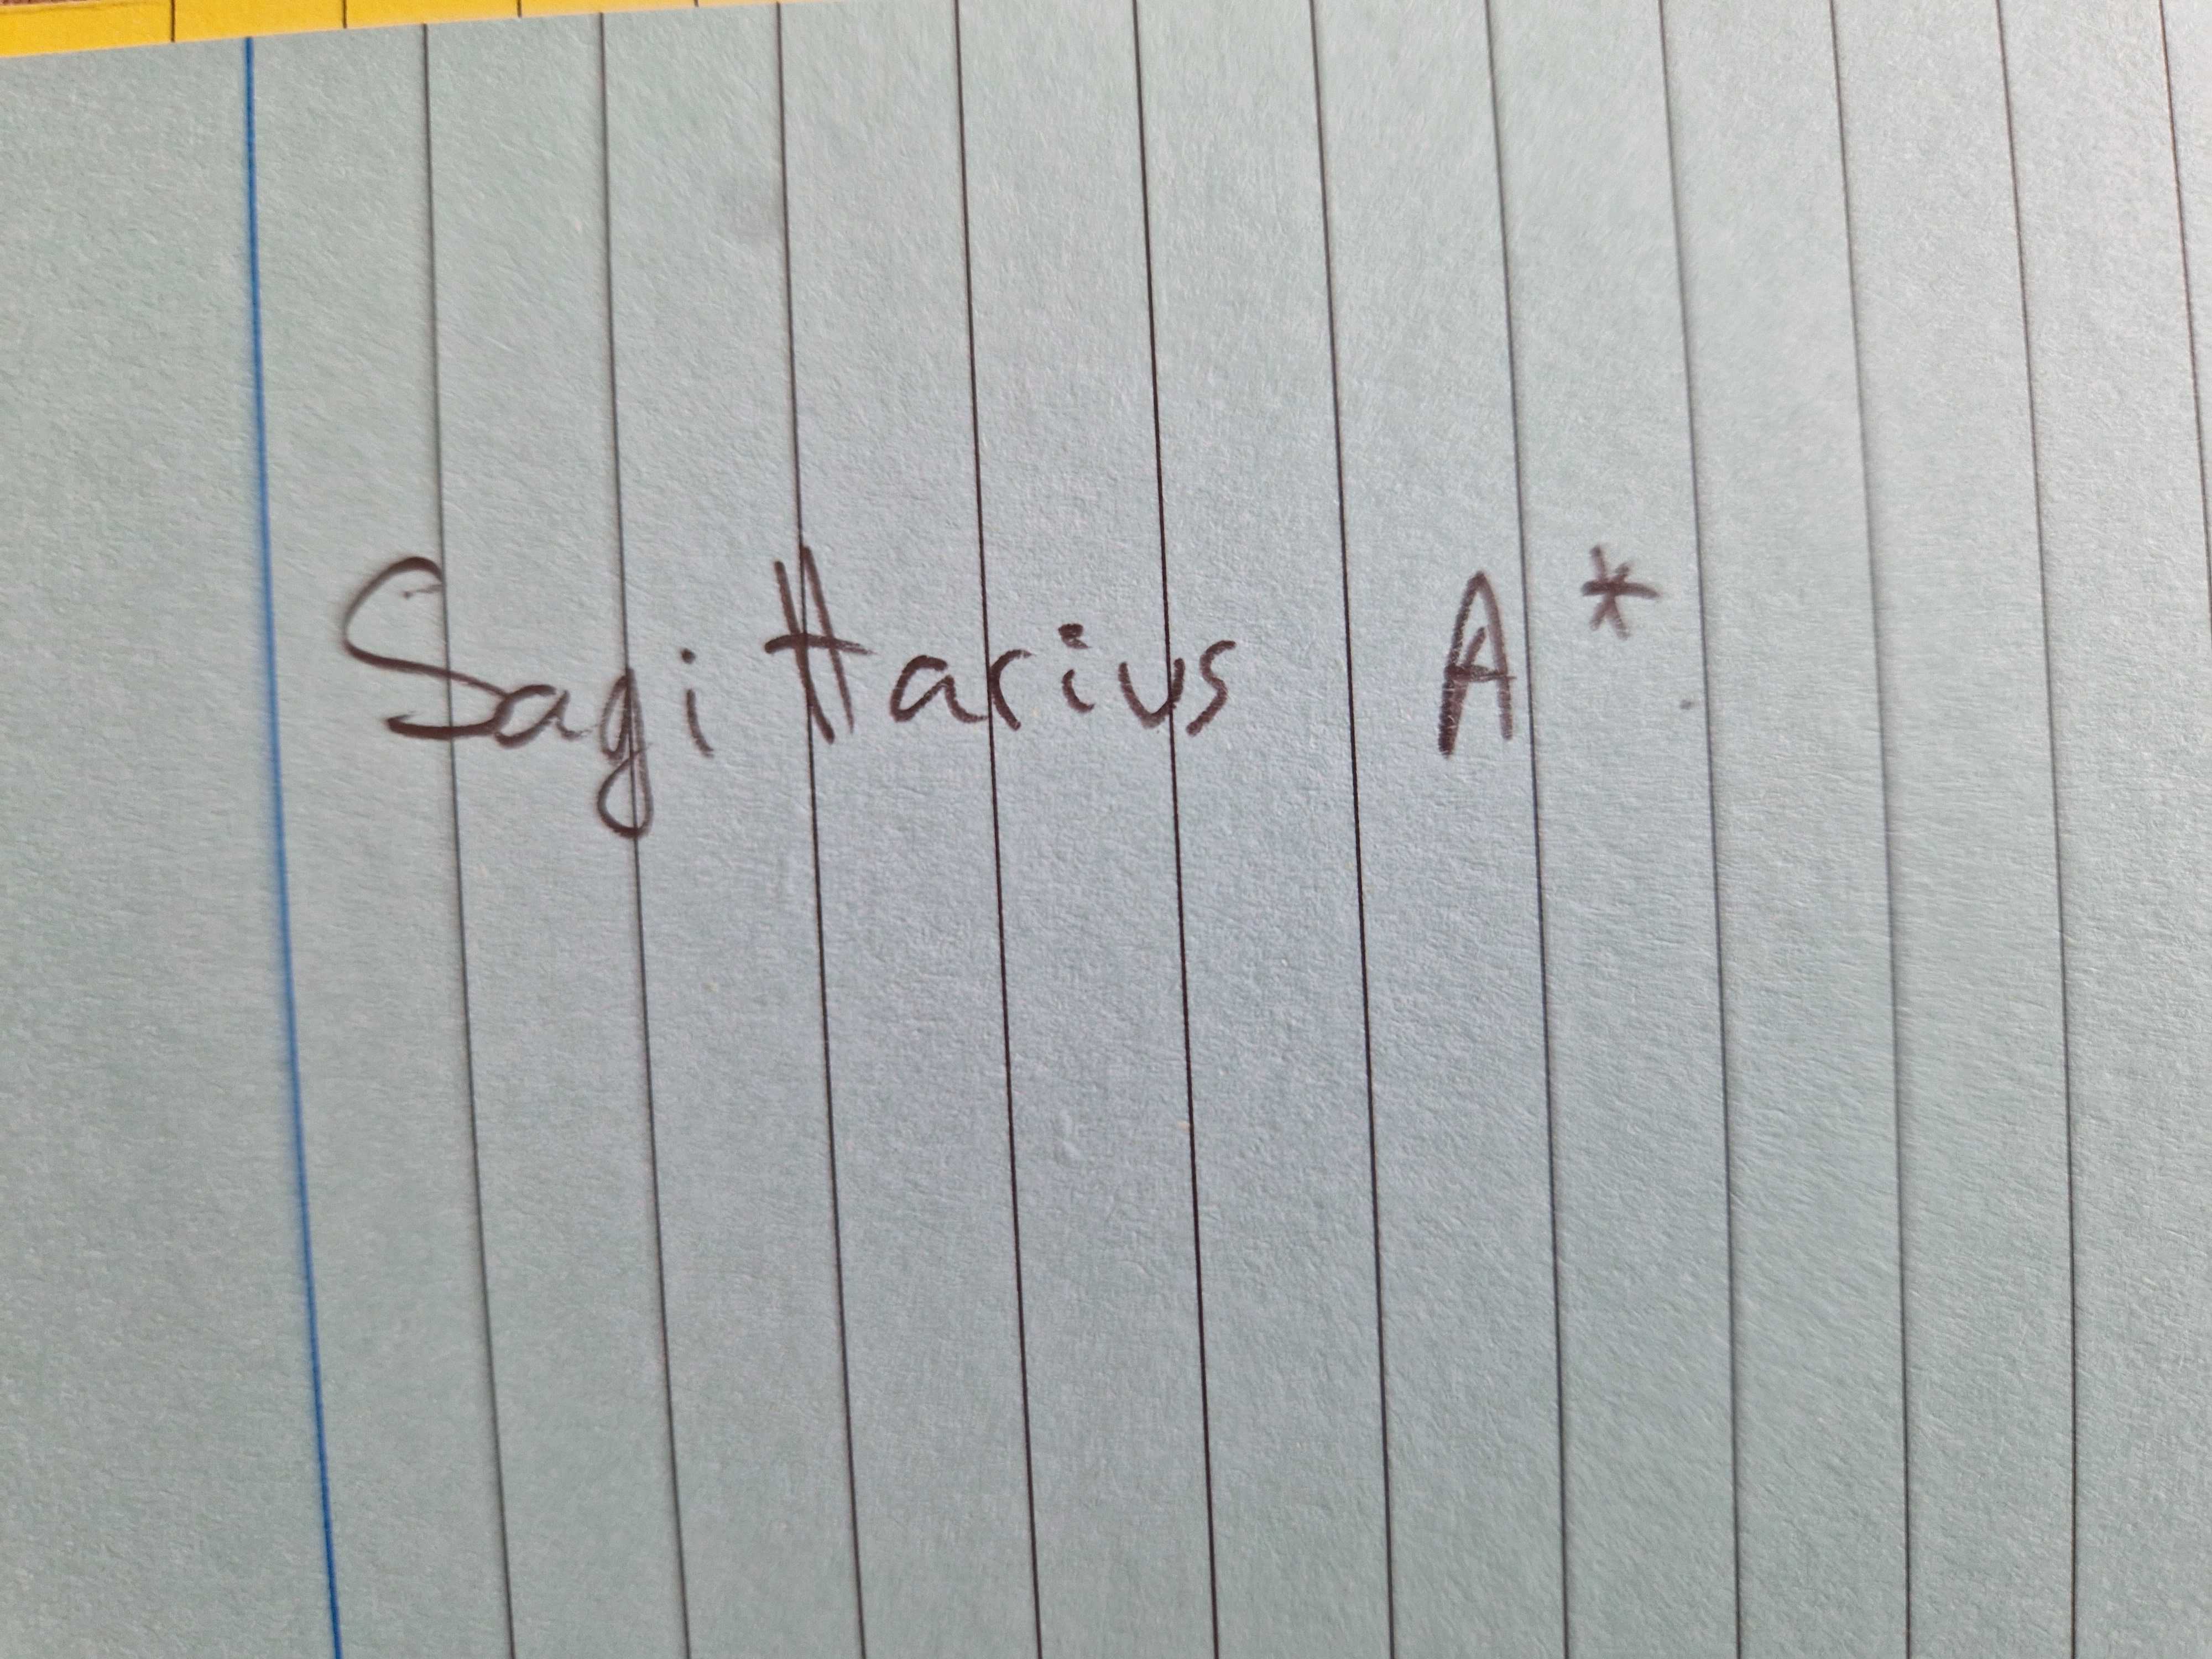 Sagittarius A*